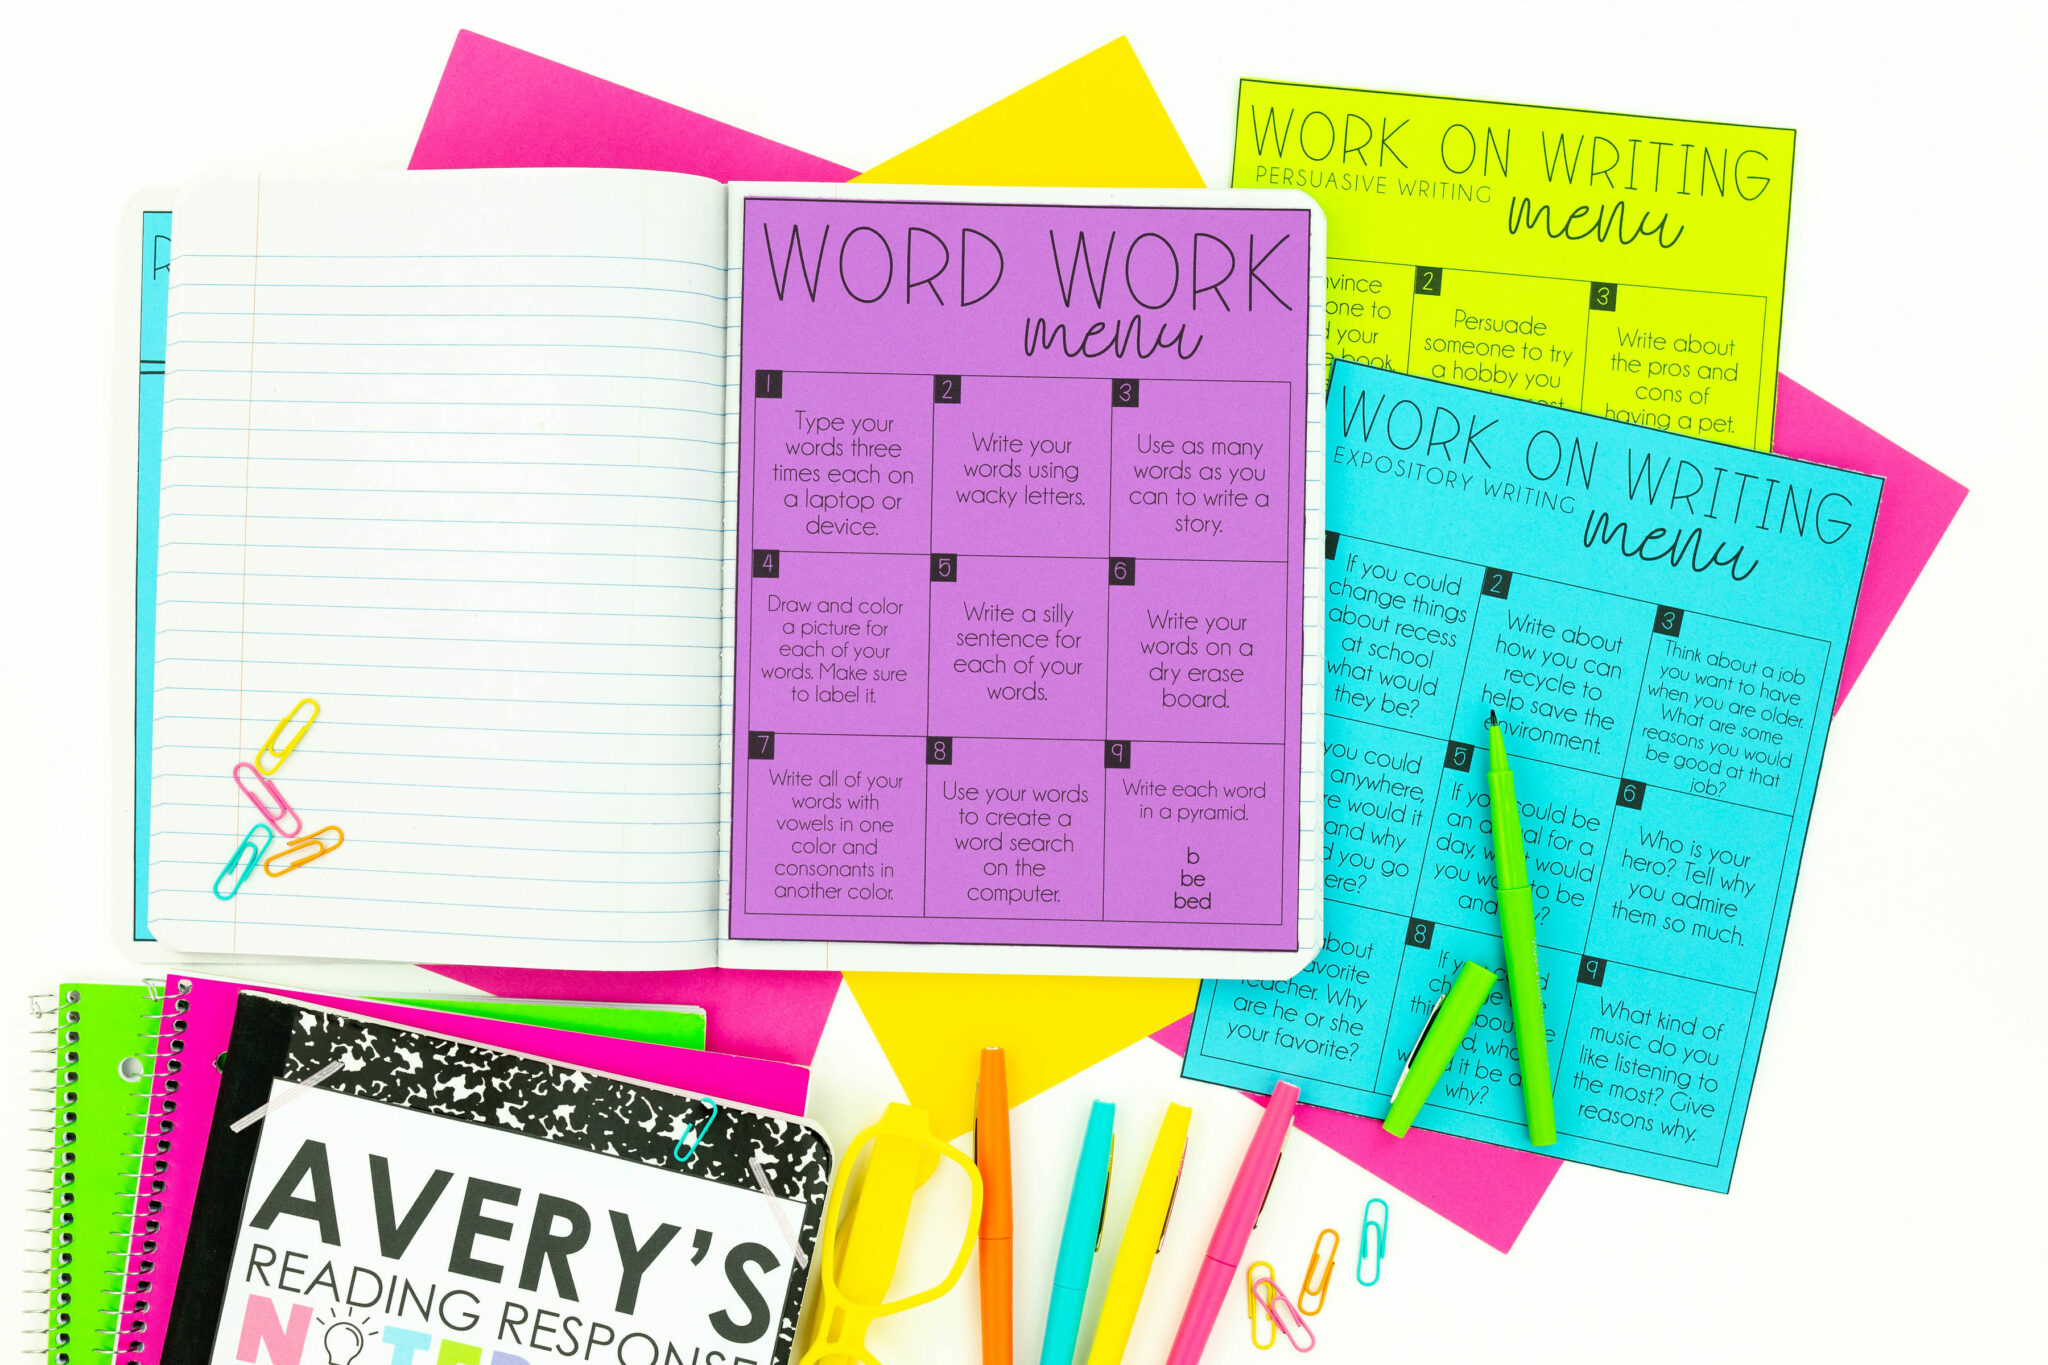 WORD WORK
menu
1
Type your
words three
times each on
a laptop or
device.
2
Write your
words using
wacky letters.
3
Use as many
words as you
can to write a
story.
4
Draw and color
a picture for
each of your
words. Make sure
to label it.
5
Write a silly
sentence for
each of your
words.
6
Write your
words on a
dry erase
board.
7
Write all of your
words with
vowels in one
color and
consonants in
another color.
8
Use your words
to create a
word search
on the
computer.
9
Write each word
in a pyramid.
b
be
bed
WORK ON WRITING
PERSUASIVE WRITING
menu
one to
your
book
2
Persuade
someone to try
a hobby you
3
Write about
the pros and
cons of
having a pet.
WORK ON WRITING
EXPOSITORY WRITING
menu
If you could
change things
about recess
at school
what would
they be?
2
Write about
how you can
recycle to
help save the
environment.
3
Think about a job
you want to have
when you are older.
What are some
reasons you would
be good at that
job?
you could
anywhere,
would it
and why
you go
5
If you could be
an for a
day, would
you to be
and
6
Who is your
hero? Tell why
you admire
them so much.
about
teacher. Why
are he or she
your favorite?
8
If
it be
why?
9
What kind of
music do you
like listening to
the most? Give
reasons why.
AVERY'S
READING RESPONSE